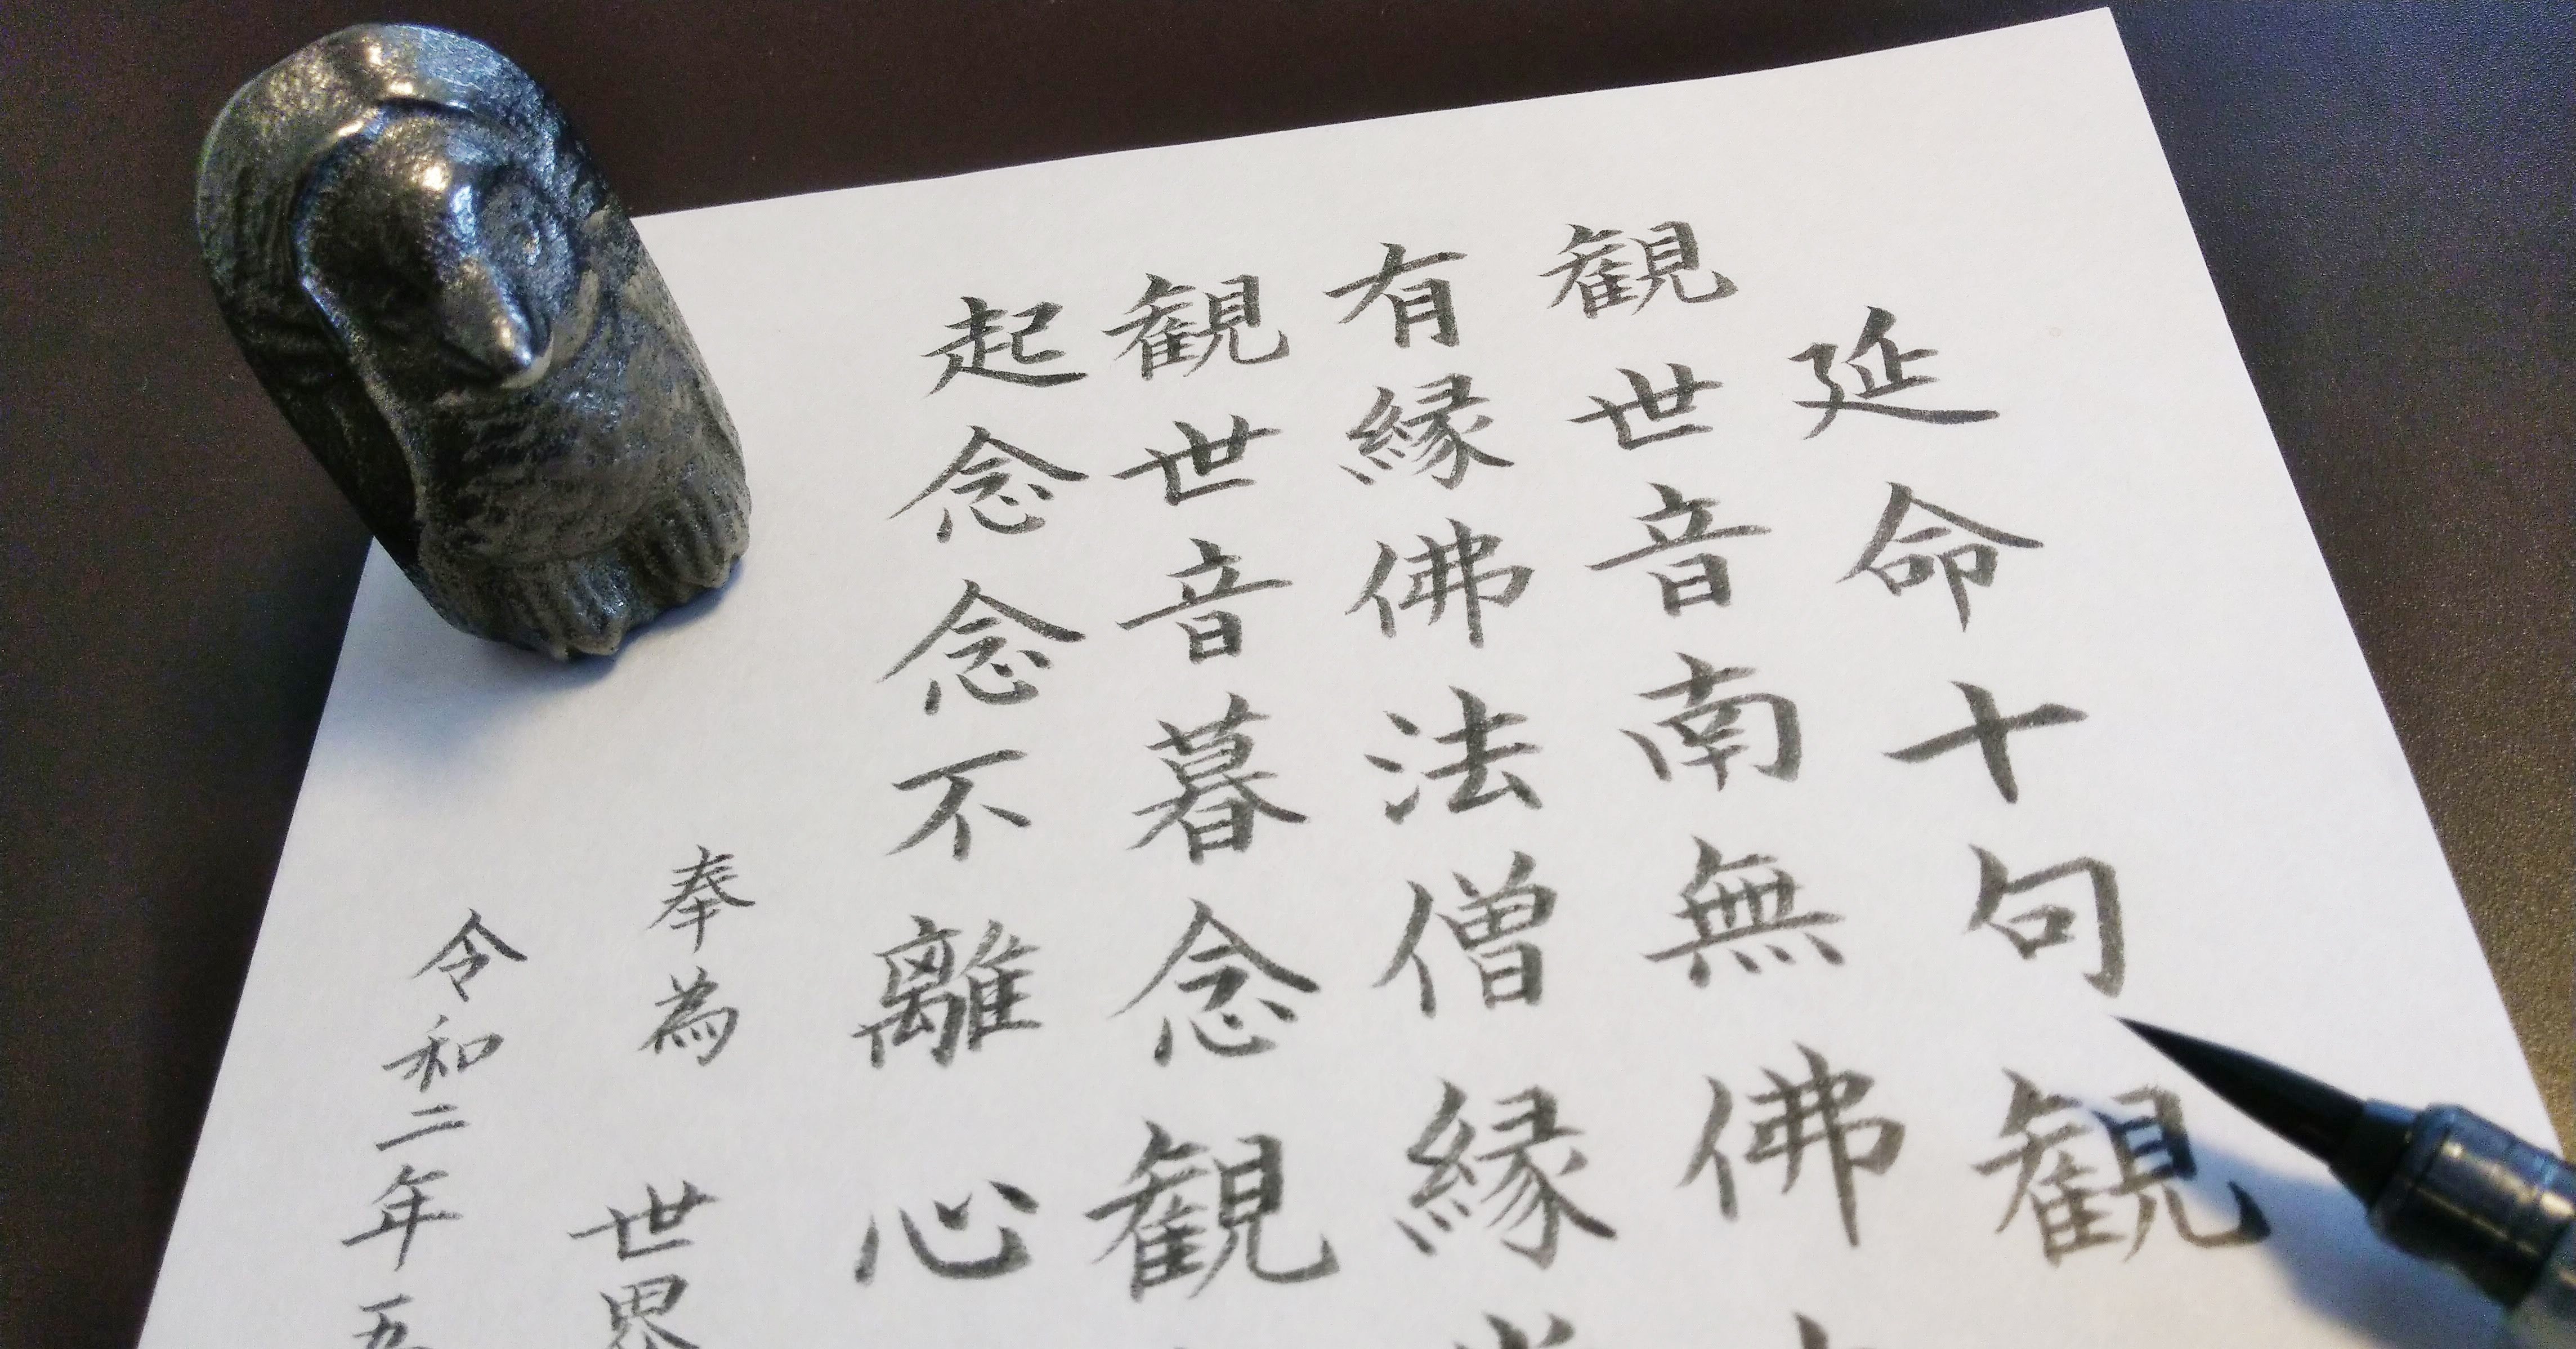 延命十句観
観世音南無佛
有縁佛法僧縁
観世音暮念観
起念念不離心
奉為 世界
令和二年五